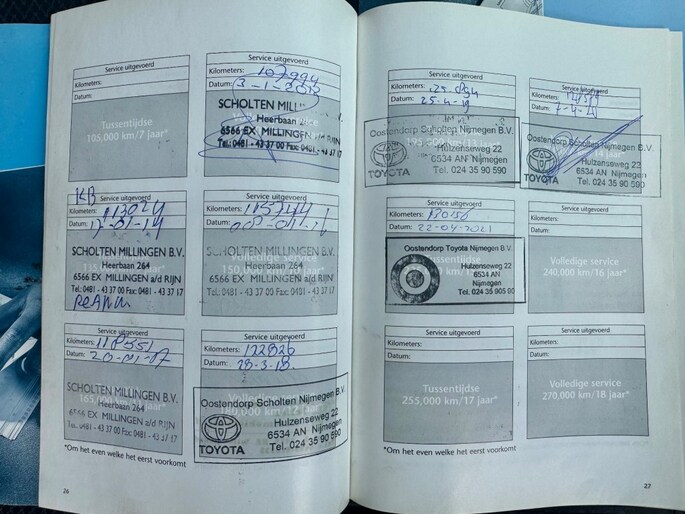 Service uitgevoerd
Kilometers:
Datum:
Tussentijdse
105,000 km/7 jaar*
Service uitgevoerd
Kilometers: 107994
Datum: 3-1-2012
SCHOLTEN MILL
Heerbaan 26
6566 EX MILLINGEN a/d RIJN
Tel.: 0481 - 43 37 00 Fax: 0481 - 43 37 17
KB
Service uitgevoerd
Kilometers: 113024
Datum: 17-01-14
SCHOLTEN MILLINGEN B.V.
Heerbaan 264
6566 EX MILLINGEN a/d RIJN
Tel.: 0481 - 43 37 00 Fax: 0481 - 43 37 17
Service uitgevoerd
Kilometers: 115744
Datum:
SCHOLTEN MILLINGEN B.V.
Heerbaan 264
6566 EX MILLINGEN a/d RIJN
Tel.: 0481 - 43 37 00 Fax: 0481 - 43 37 17
Service uitgevoerd
Kilometers: 118551
Datum: 20-01-17
SCHOLTEN MILLINGEN B.V.
Heerbaan 264
6566 EX MILLINGEN a/d RIJN
Tel.: 0481 - 43 37 00 Fax: 0481 - 43 37 17
Service uitgevoerd
Kilometers: 122826
Datum: 28-3-18
Oostendorp Scholten Nijmegen B.V.
Huizenseweg 22
6534 AN Nijmegen
Tel. 024 35 90 590
TOYOTA
*Om het even welke het eerst voorkomt
26
Service uitgevoerd
Kilometers:
Datum: 25-4-19
Oostendorp Scholten Nijmegen B.V.
Huizenseweg 22
6534 AN Nijmegen
Tel. 024 35 90 590
TOYOTA
Service uitgevoerd
Kilometers:
Datum: 7-4-21
Oostendorp Scholten Nijmegen B.V.
Huizenseweg 22
6534 AN Nijmegen
Tel. 024 35 90 590
TOYOTA
Service uitgevoerd
Kilometers: 130156
Datum: 22-04-2021
Oostendorp Toyota Nijmegen B.V.
Huizenseweg 22
6534 AN
Nijmegen
Tel. 024 35 905 90
Service uitgevoerd
Kilometers:
Datum:
Volledige service
240,000 km/16 jaar*
Service uitgevoerd
Kilometers:
Datum:
Tussentijdse
255,000 km/17 jaar*
Service uitgevoerd
Kilometers:
Datum:
Volledige service
270,000 km/18 jaar*
*Om het even welke het eerst voorkomt
27